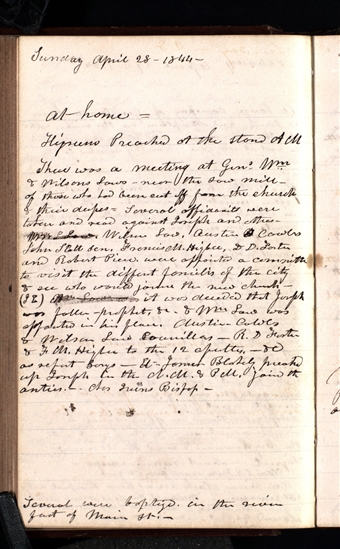 Sunday April 28 - 1844 -
at home =
Hiprens Preached at the stand A M
There was a meeting at Genl Wm
& Wilsons Laws - near the saw mill
of those who had been cut off from the church
& their dupes - Several affidavits were
taken and read against Joseph and others
Wm S Law, Wilson Law, Austin D Cowles
John Scott sen, Francis M. Higbee, R. D. Foster
and Robert Pierce were appointed a committee
to visit the different families of the city
& see who would joine the new church -
(I E) Wm Law it was decided that Joseph
was fallen - prophet, &c - & Wm Law was
appointed in his place. Austin Cowles
& Wilson Law Councillors - R. D. Foster
& F. M. Higbee to the 12 apostles, - &c
as report says - El- James Blakely preached
up Joseph in the A. M. & P.M. join the
anties. - Cha Ivins Bishop -
Several were baptizd. in the river
foot of Main St. -